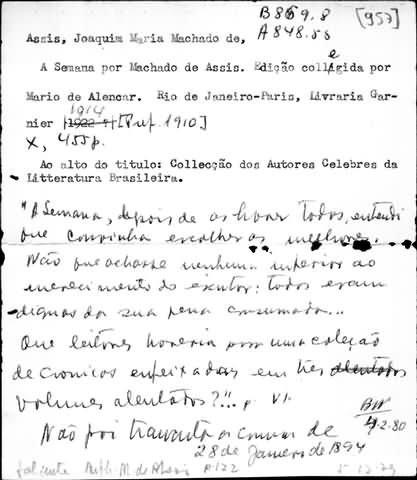 B869.8 [957]
Assis, Joaquim Maria Machado de, A848.58
e
A Semana por Machado de Assis. Edição collegida por
Mario de Alencar. Rio de Janeiro-Paris, Livraria Gar-
1914
nier [Pref. 1910]
X, 455p.
Ao alto do titulo: Collecção dos Autores Celebres da
Litteratura Brasileira.
"A Semana, depois de as haver todos, entendi
que convinha escolher as melhores.
Não que achasse nenhum inferior ao
merecimento do escritor: todos eram
dignas da sua pena consumada...
Que leitores haveria por uma coleção
de cronicas enfeixadas em tres alentados
volumes alentados?"... p VI.
BN
4-2-80
Não foi a cronica de
28 de Janeiro de 1894
p 122